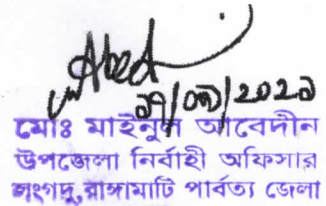 Abed
মোঃ মাইনুল আবেদীন
উপজেলা নির্বাহী অফিসার
লংগদু, রাঙ্গামাটি পার্বত্য জেলা